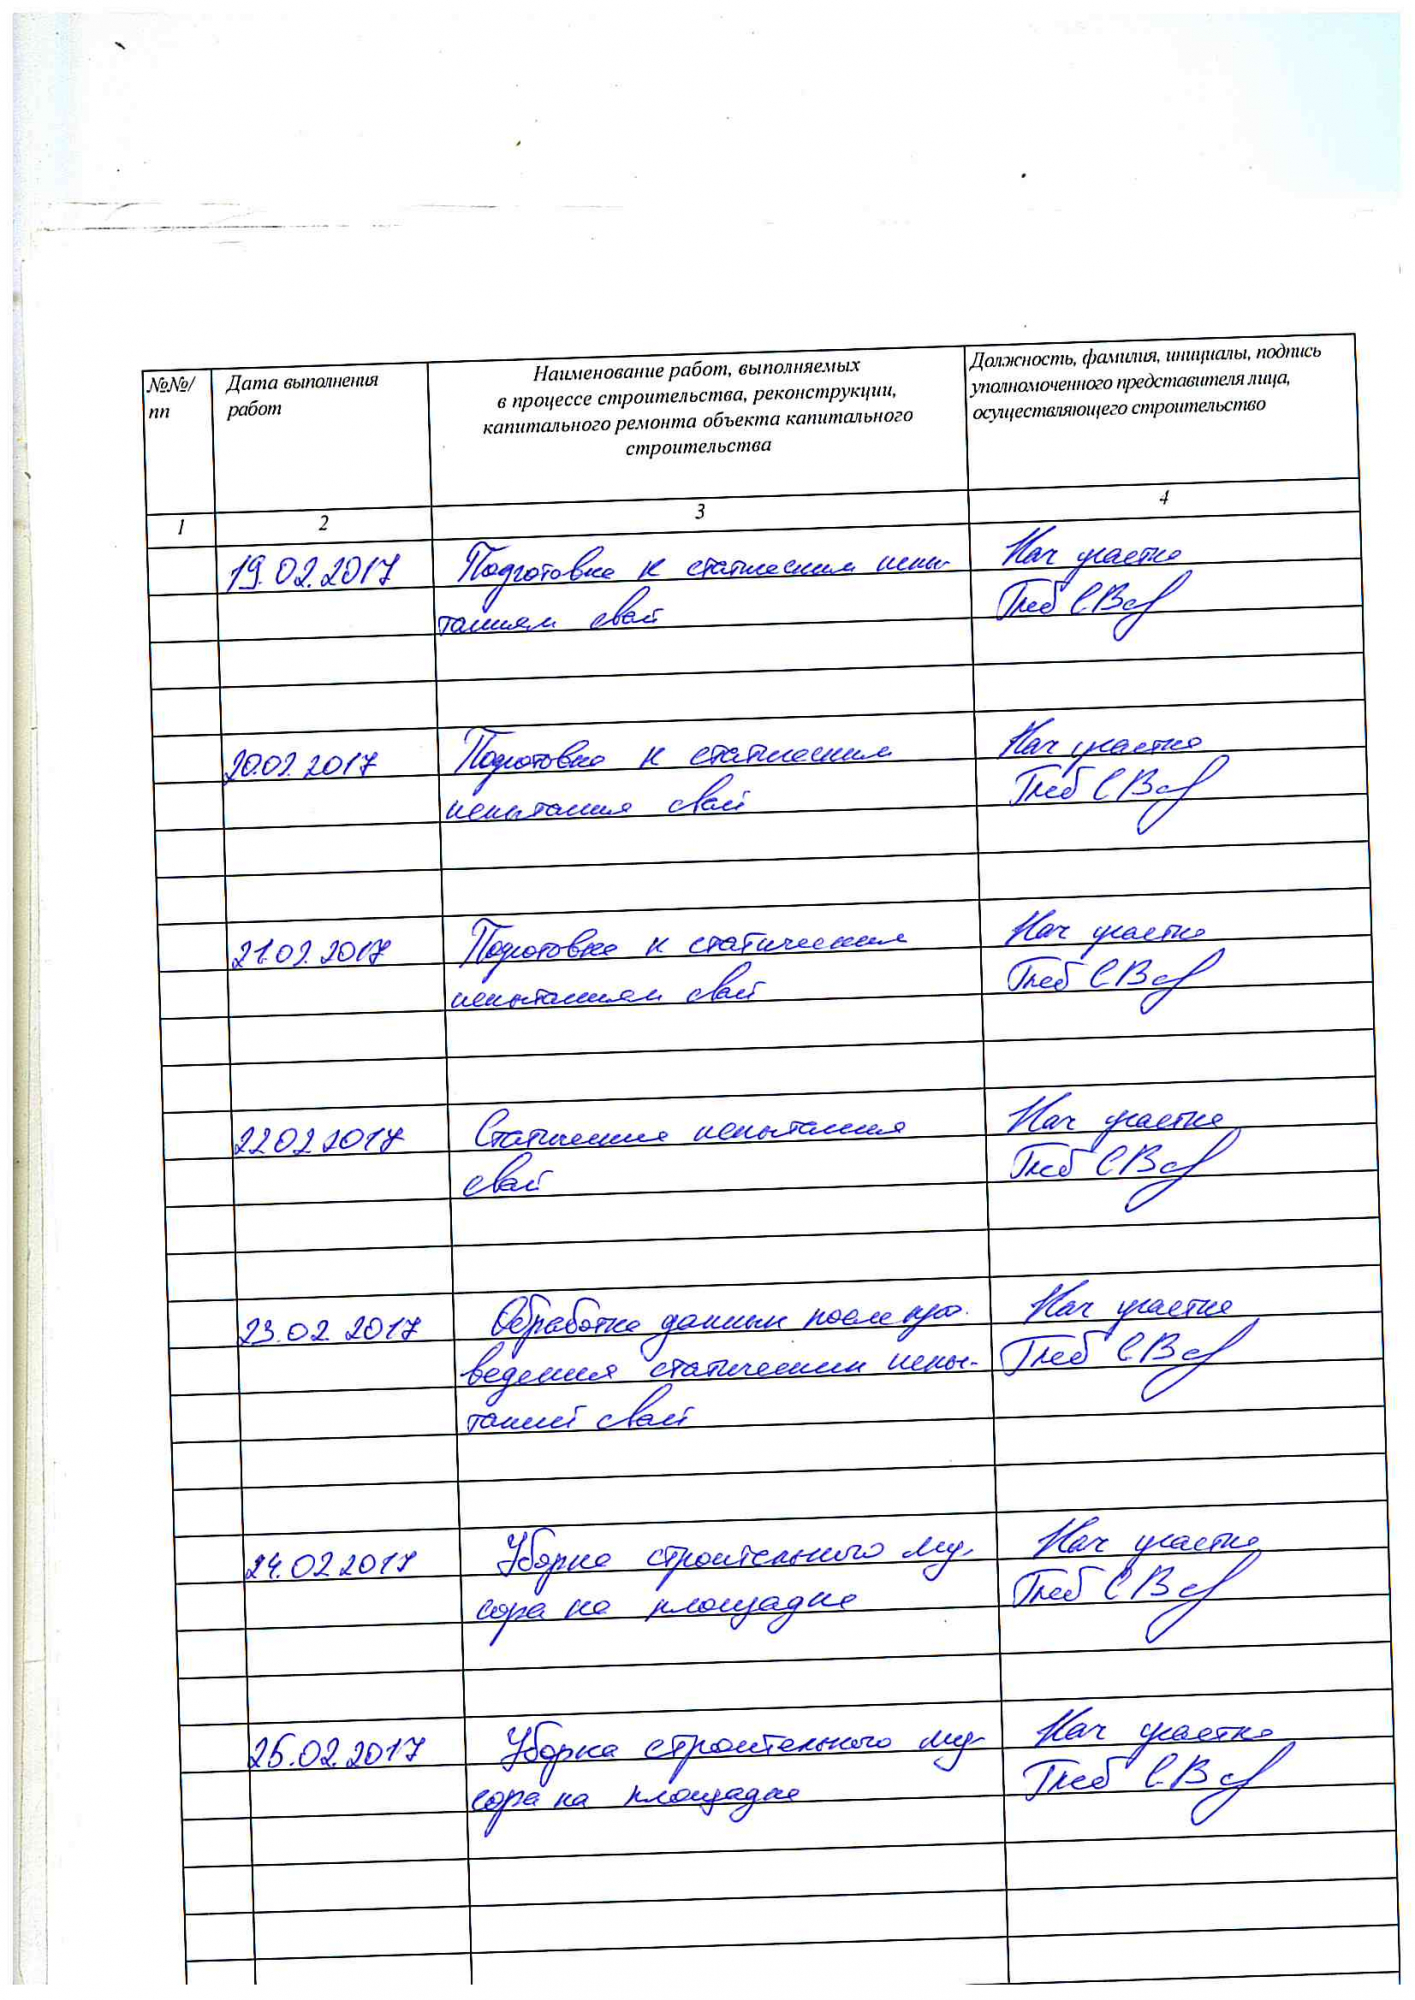 №№/
пп
Дата выполнения
работ
Наименование работ, выполняемых
в процессе строительства, реконструкции,
капитального ремонта объекта капитального
строительства
Должность, фамилия, инициалы, подпись
уполномоченного представителя лица,
осуществляющего строительство
1 2 3 4
19.02.2017 Подготовка к статическим испы- Нач участка
таниям свай Глеб С В
20.02.2017 Подготовка к статическим Нач участка
испытания свай Глеб С В
21.02.2017 Подготовка к статическим Нач участка
испытаниям свай Глеб С В
22.02.2017 Статические испытания Нач участка
свай Глеб С В
23.02.2017 Обработка данных после про- Нач участка
ведения статических испы- Глеб С В
таний свай
24.02.2017 Уборка строительного му- Нач участка
сора на площадке Глеб С В
25.02.2017 Уборка строительного му- Нач участка
сора на площадке Глеб С В